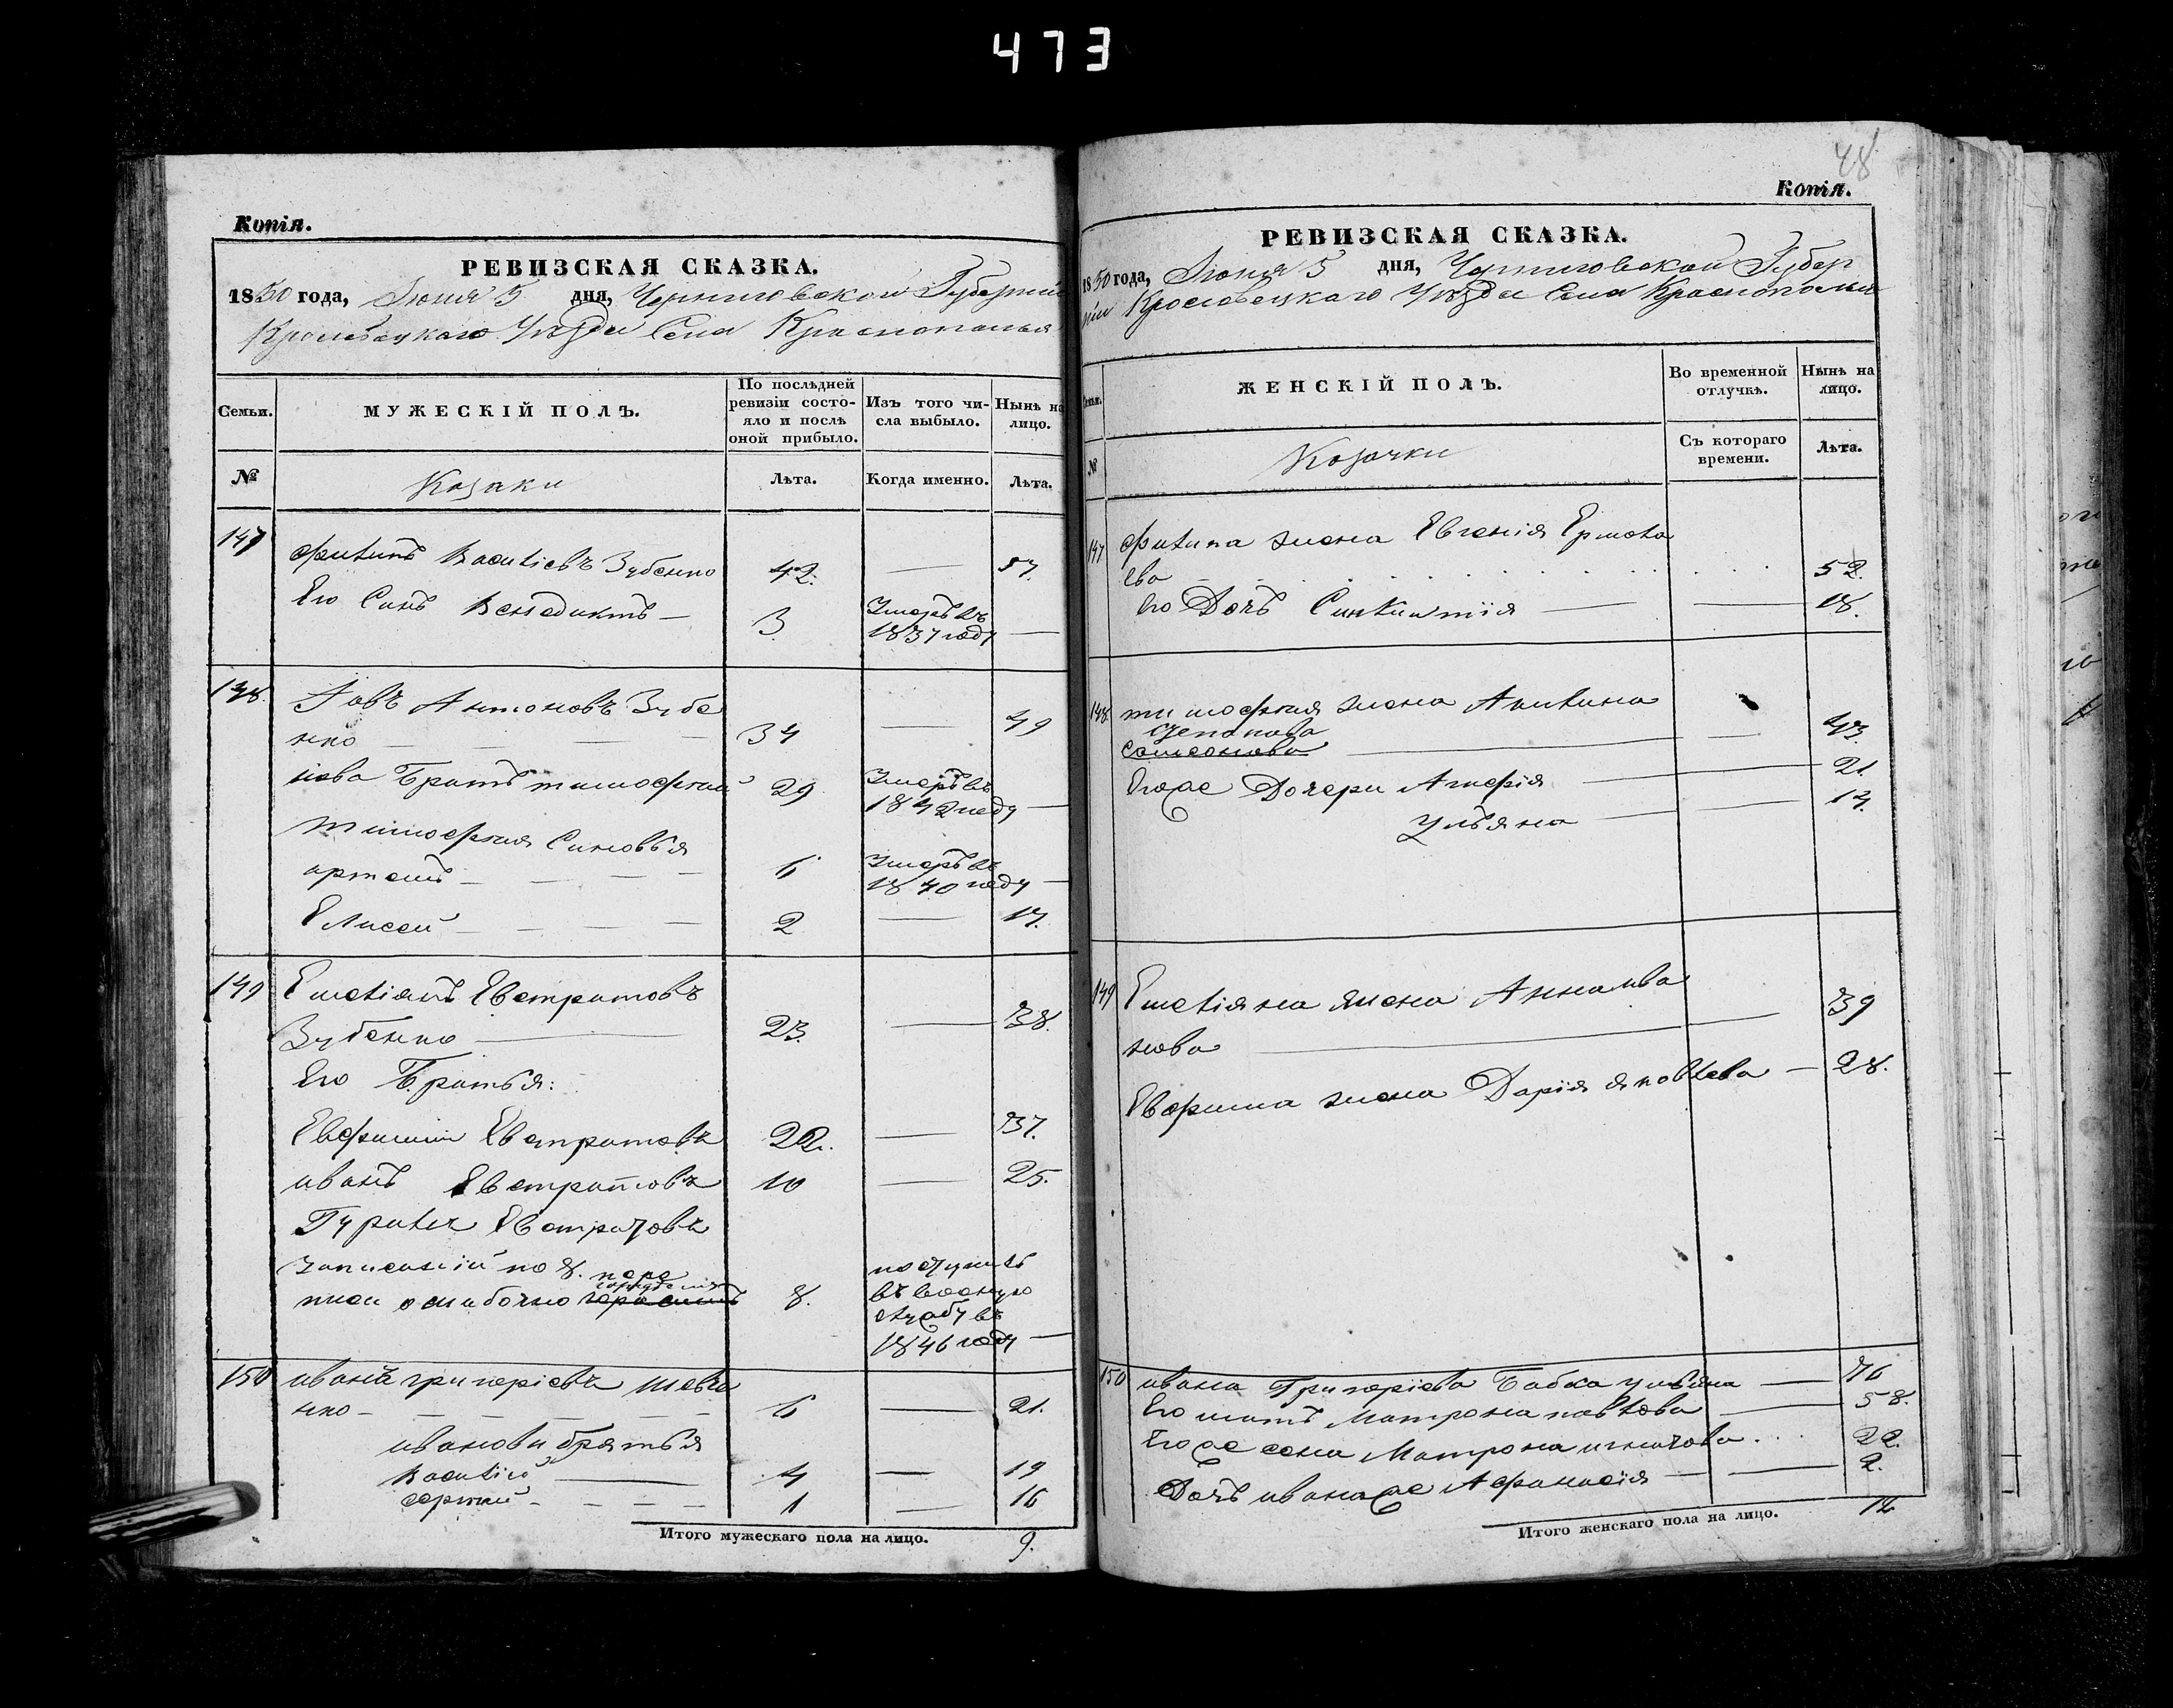 473
Копія.
РЕВИЗСКАЯ СКАЗКА.
1850 года, Июня 5 дня, Черниговской Губерніи
Кролевецкаго Уѣзда Села Краснополья
Семьи.
МУЖЕСКІЙ ПОЛЪ.
По послѣдней ревизіи состояло и послѣ оной прибыло.
Изъ того числа выбыло.
Нынѣ на лицо.
№
Козаки
Лѣта.
Когда именно.
Лѣта.
147
Филипъ Василіевъ Зубенко 42. — 57.
Его Синъ Венедиктъ — 3 Умеръ въ
1837 году —
148.
Іовъ Антоновъ Зубе
нко — 34 — 49
Іова Братъ тимофтей 29 Умеръ въ
1842 году —
тимофтея Синовья
артемъ — 6 Умеръ въ
1840 году —
Елисей — 2 — 17.
149
Емеліянъ Евстратовъ
Зубенко — 23. — 38.
Его Братья:
Евфимій Евстратовъ 22. — 37.
иванъ Евстратовъ 10 — 25.
Евстратовъ
записаній по 8. пере
писи ошибочно 8.
поступилъ
въ воєную
службу въ
1846 году —
150
иванъ григоріевъ шевче
нко — 6 — 21.
иванови братья
Василій — 4 — 19
сергей — 1 — 16
Итого мужескаго пола на лицо. 9.
48
Копія.
РЕВИЗСКАЯ СКАЗКА.
1850 года, Июня 5 дня, Черниговской Губер
ніи Кролевецкаго Уѣзда Села Краснополья
Семьи.
ЖЕНСКІЙ ПОЛЪ.
Во временной отлучкѣ.
Нынѣ на лицо.
№
Козачки
Съ котораго времени.
Лѣта.
147
Филипа жена Евгенія Ермола
ева 52.
Его Дочъ Синклитія — 18.
148.
тимофтея жена Акилина
Степанова
Самсонова — 43.
Егоже Дочери Агафія — 21.
Ульяна — 14.
149
Емеліяна жена Анна ива
нова — 39
Евфима жена Дарія яковлева — 28.
150
ивана Григоріева Бабка ульяна — 76
Его мать Матрона павлова — 58.
Егоже жена Матрона игнатова 22.
Дочъ иванаже Афанасія — 2.
Итого женскаго пола на лицо. 12